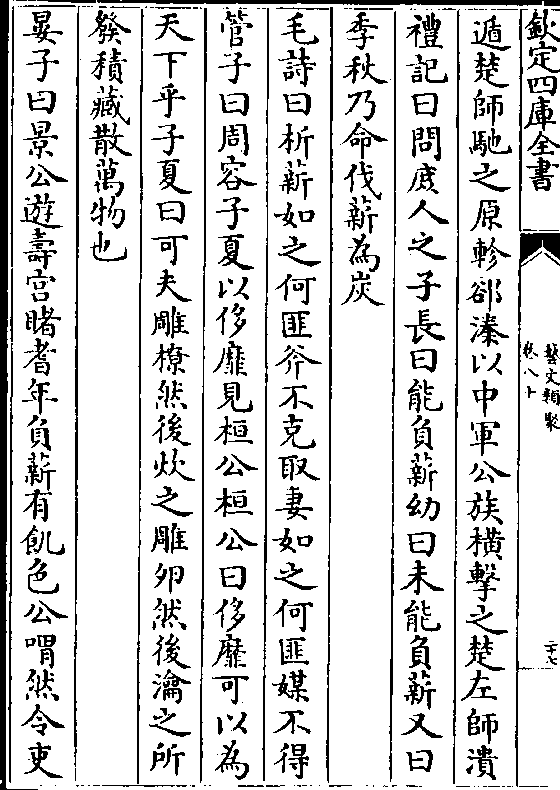 欽定四庫全書
藝文類聚
卷八十
二十七
遁楚師馳之原軫郤溱以中軍公族橫擊之楚左師潰
禮記曰問庻人之子長曰能負薪幼曰未能負薪又曰
季秋乃命伐薪為炭
毛詩曰析薪如之何匪斧不克取妻如之何匪媒不得
管子曰周容子夏以侈靡見桓公桓公曰侈靡可以為
天下乎子夏曰可夫雕橑然後炊之雕卵然後瀹之所
發積藏散萬物也
晏子曰景公遊壽宮睹耆年負薪有飢色公喟然令吏